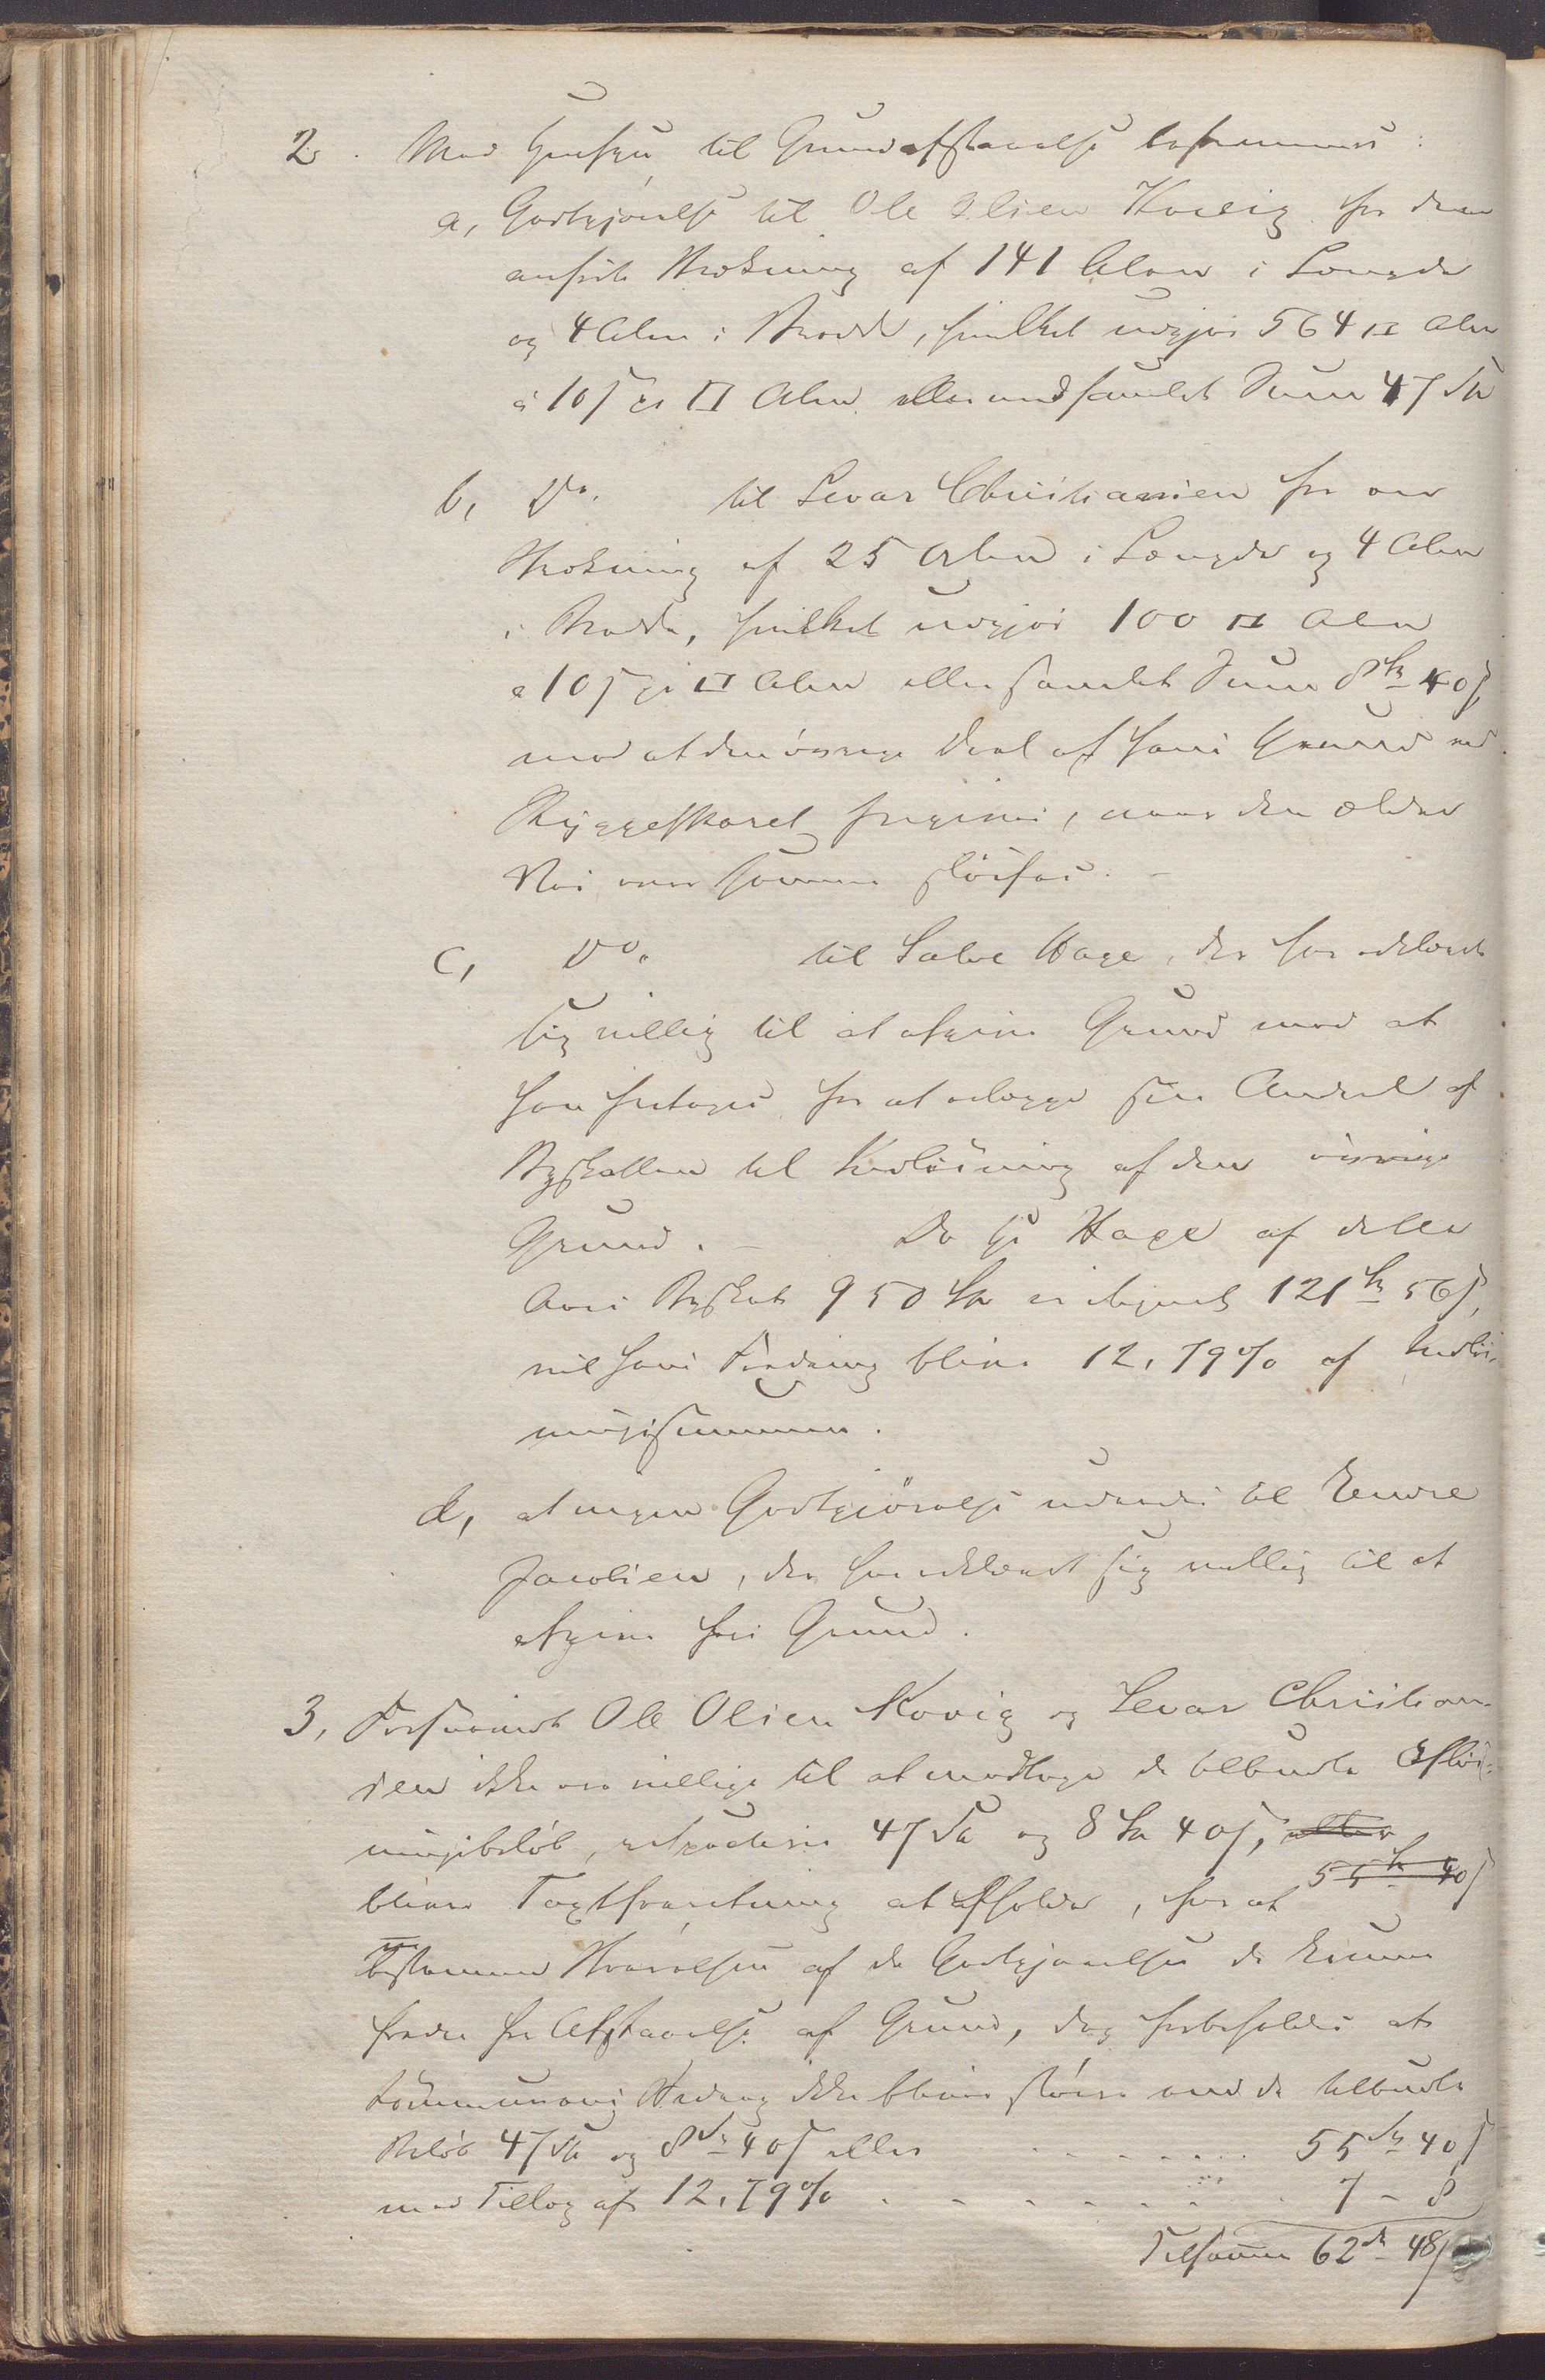 2. Med Hensyn til Grundafstaaelse bestemmes:
a, Godtgjørelse til Ole Olsen Kovig for den
anførte Strækning af 141 Alen i Længde
og 4 Alen i Bredde, hvilket udgjør 564 □ Alen
à 10 ß pr □ Alen eller med samlet Sum 47 Sp
b, Do. til Sevar Christiansen for en
Strækning af 25 Alen i Længde og 4 Alen
i Bredde, hvilket udgjør 100 □ Alen
à 10 ß pr □ Alen eller samlet Sum 8 Sp 40 ß,
mod at den øvrige Deel af hans Grund ved
Ryggeskaret frigives, naar den ældre
Vei over samme sløifes. -
c, Do. til Salve Hage, der har erklæret
sig villig til at afgive Grund mod at
han fritages for at erlægge sin Andeel af
Byskatten til Indløsning af den øvrige
Grund. - Da hr Hage af dette
Aars Byskat 950 Sp er ilignet 121 Sp 56 ß,
vil hans Fordring blive 12,79% af Indløs-
ningssummen.
d, at ingen Godtgjørelse udredes til Endre
Jacobsen, der har erklæret sig villig til at
afgive fri Grund.
3, Forsaavidt Ole Olsen Kovig og Sevar Christian-
sen ikke ere villige til at modtage de tilbudte Afløs-
ningsbeløb, respective 47 Sp og 8 Sp 40 ß, eller
55 Sp 40 ß
bliver Taxtforretning at afholde, for at
bestemme Størrelsen af de Godtgjørelser de kunne
fordre for Afstaaelse af Grund, dog forbeholdes at
Communens Udlæg ikke bliver større end de tilbudte
Beløb 47 Sp og 8 Sp 40 ß eller . . . . . . 55 Sp 40 ß
med Tillæg af 12,79% . . . . . . . . 7 - 8
Tilsammen 62 Sp 48 ß